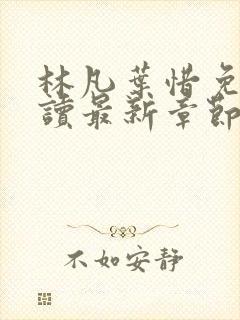 林凡葉惜免
讀最新章節
不如安靜